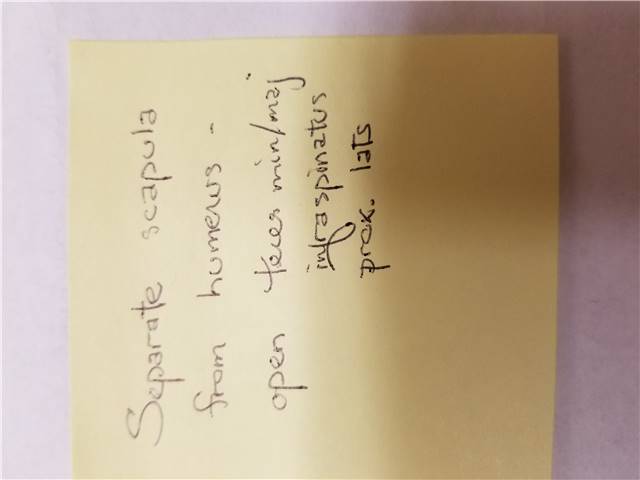 Separate scapula
from humerus -
open teres min/maj
infraspinatus
prox. lats